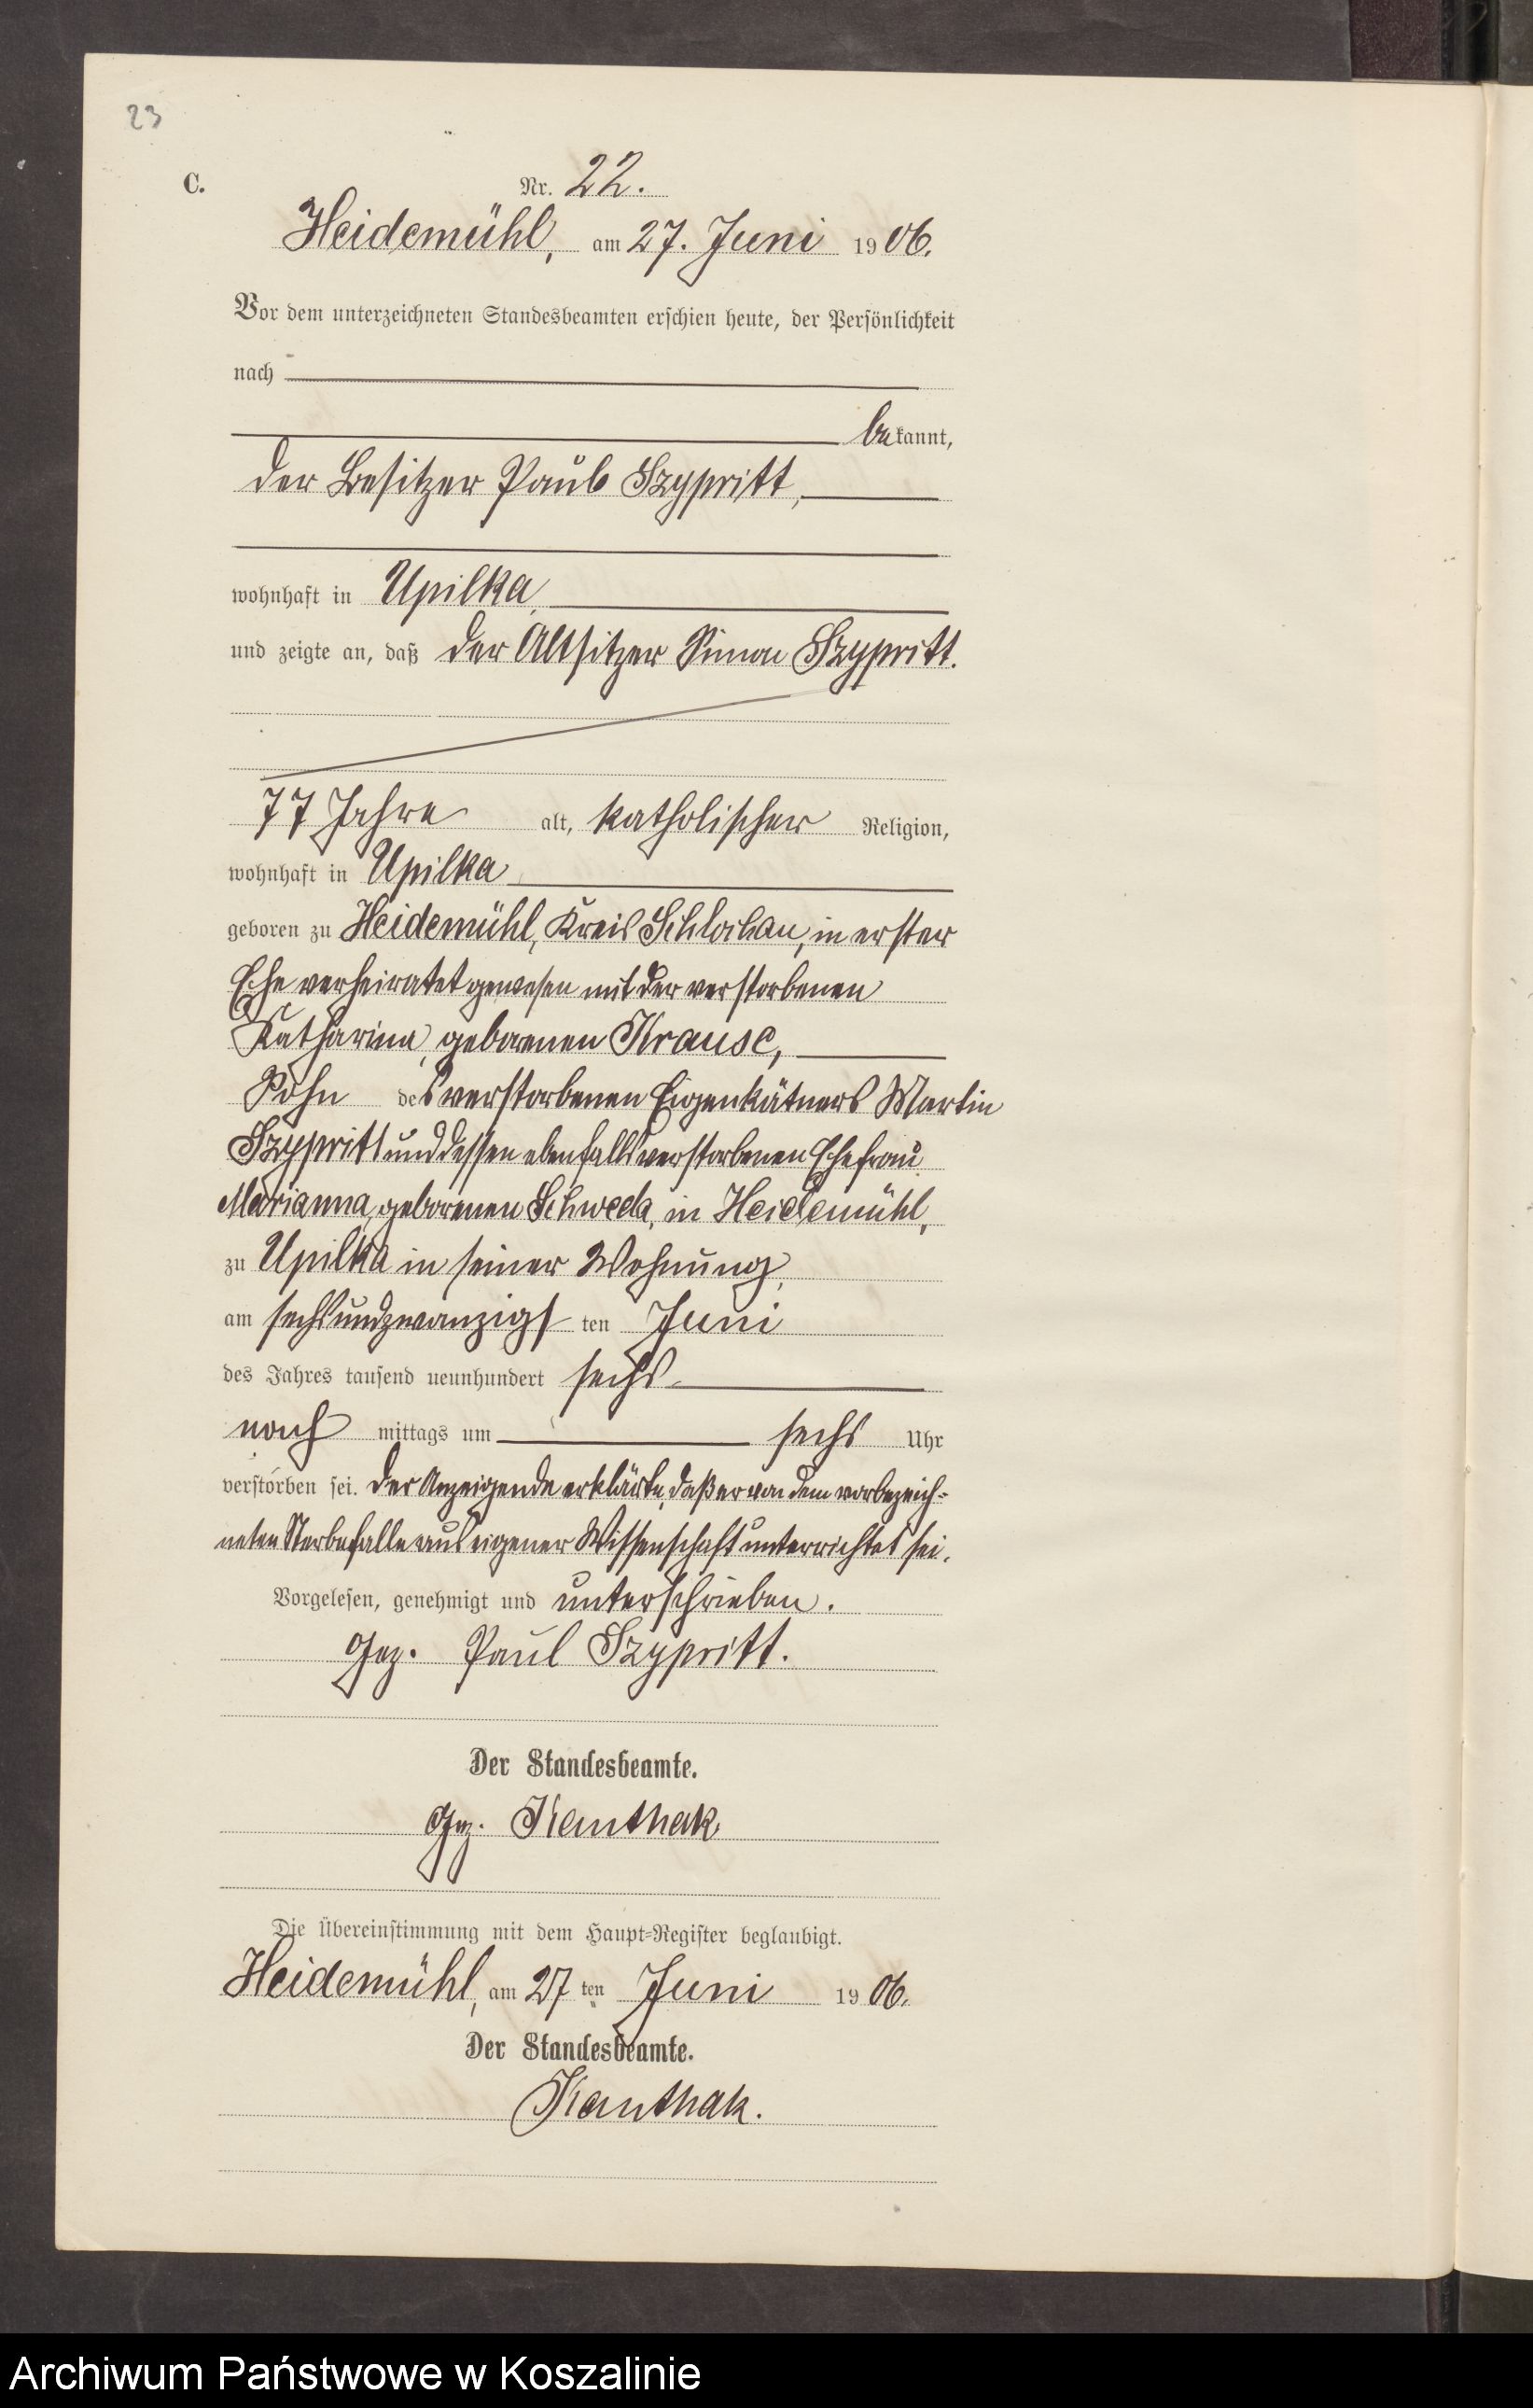 23
C.
Nr. 22.
Heidemühl, am 27. Juni 1906.
Vor dem unterzeichneten Standesbeamten erschien heute, der Persönlichkeit
nach
bekannt,
der Besitzer Paul Szypritt,
wohnhaft in Upilka
und zeigte an, daß der Altsitzer Simon Szypritt.
77 Jahre alt, katholischer Religion,
wohnhaft in Upilka
geboren zu Heidemühl, Kreis Schlochau, in erster
Ehe verheiratet gewesen mit der verstorbenen
Katharina, geborenen Krause,
Sohn des verstorbenen Eigenkätners Martin
Szypritt und dessen ebenfalls verstorbenen Ehefrau
Marianna, geborenen Schweda, in Heidemühl,
zu Upilka in seiner Wohnung,
am sechsundzwanzigsten Juni
des Jahres tausend neunhundert sechs
nachmittags um sechs Uhr
verstorben sei. Der Anzeigende erklärte, daß er von dem vorbezeich-
neten Sterbefalle aus eigener Wissenschaft unterrichtet sei.
Vorgelesen, genehmigt und unterschrieben.
Gez. Paul Szypritt.
Der Standesbeamte.
Gez. Kanthak
Die Übereinstimmung mit dem Haupt-Register beglaubigt.
Heidemühl, am 27ten Juni 1906.
Der Standesbeamte.
Kanthak.
Archiwum Państwowe w Koszalinie